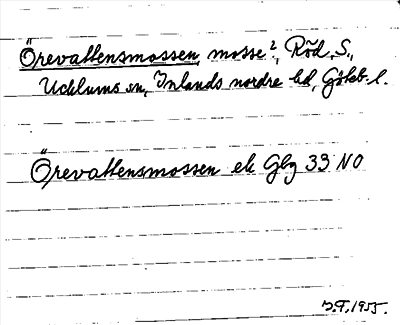 Örevattensmossen, mosse², Röd, S.,
Ucklums sn, Inlands nordre hd, Göteb. l.
Örevattensmossen ek Gbg 33 NO
1955.